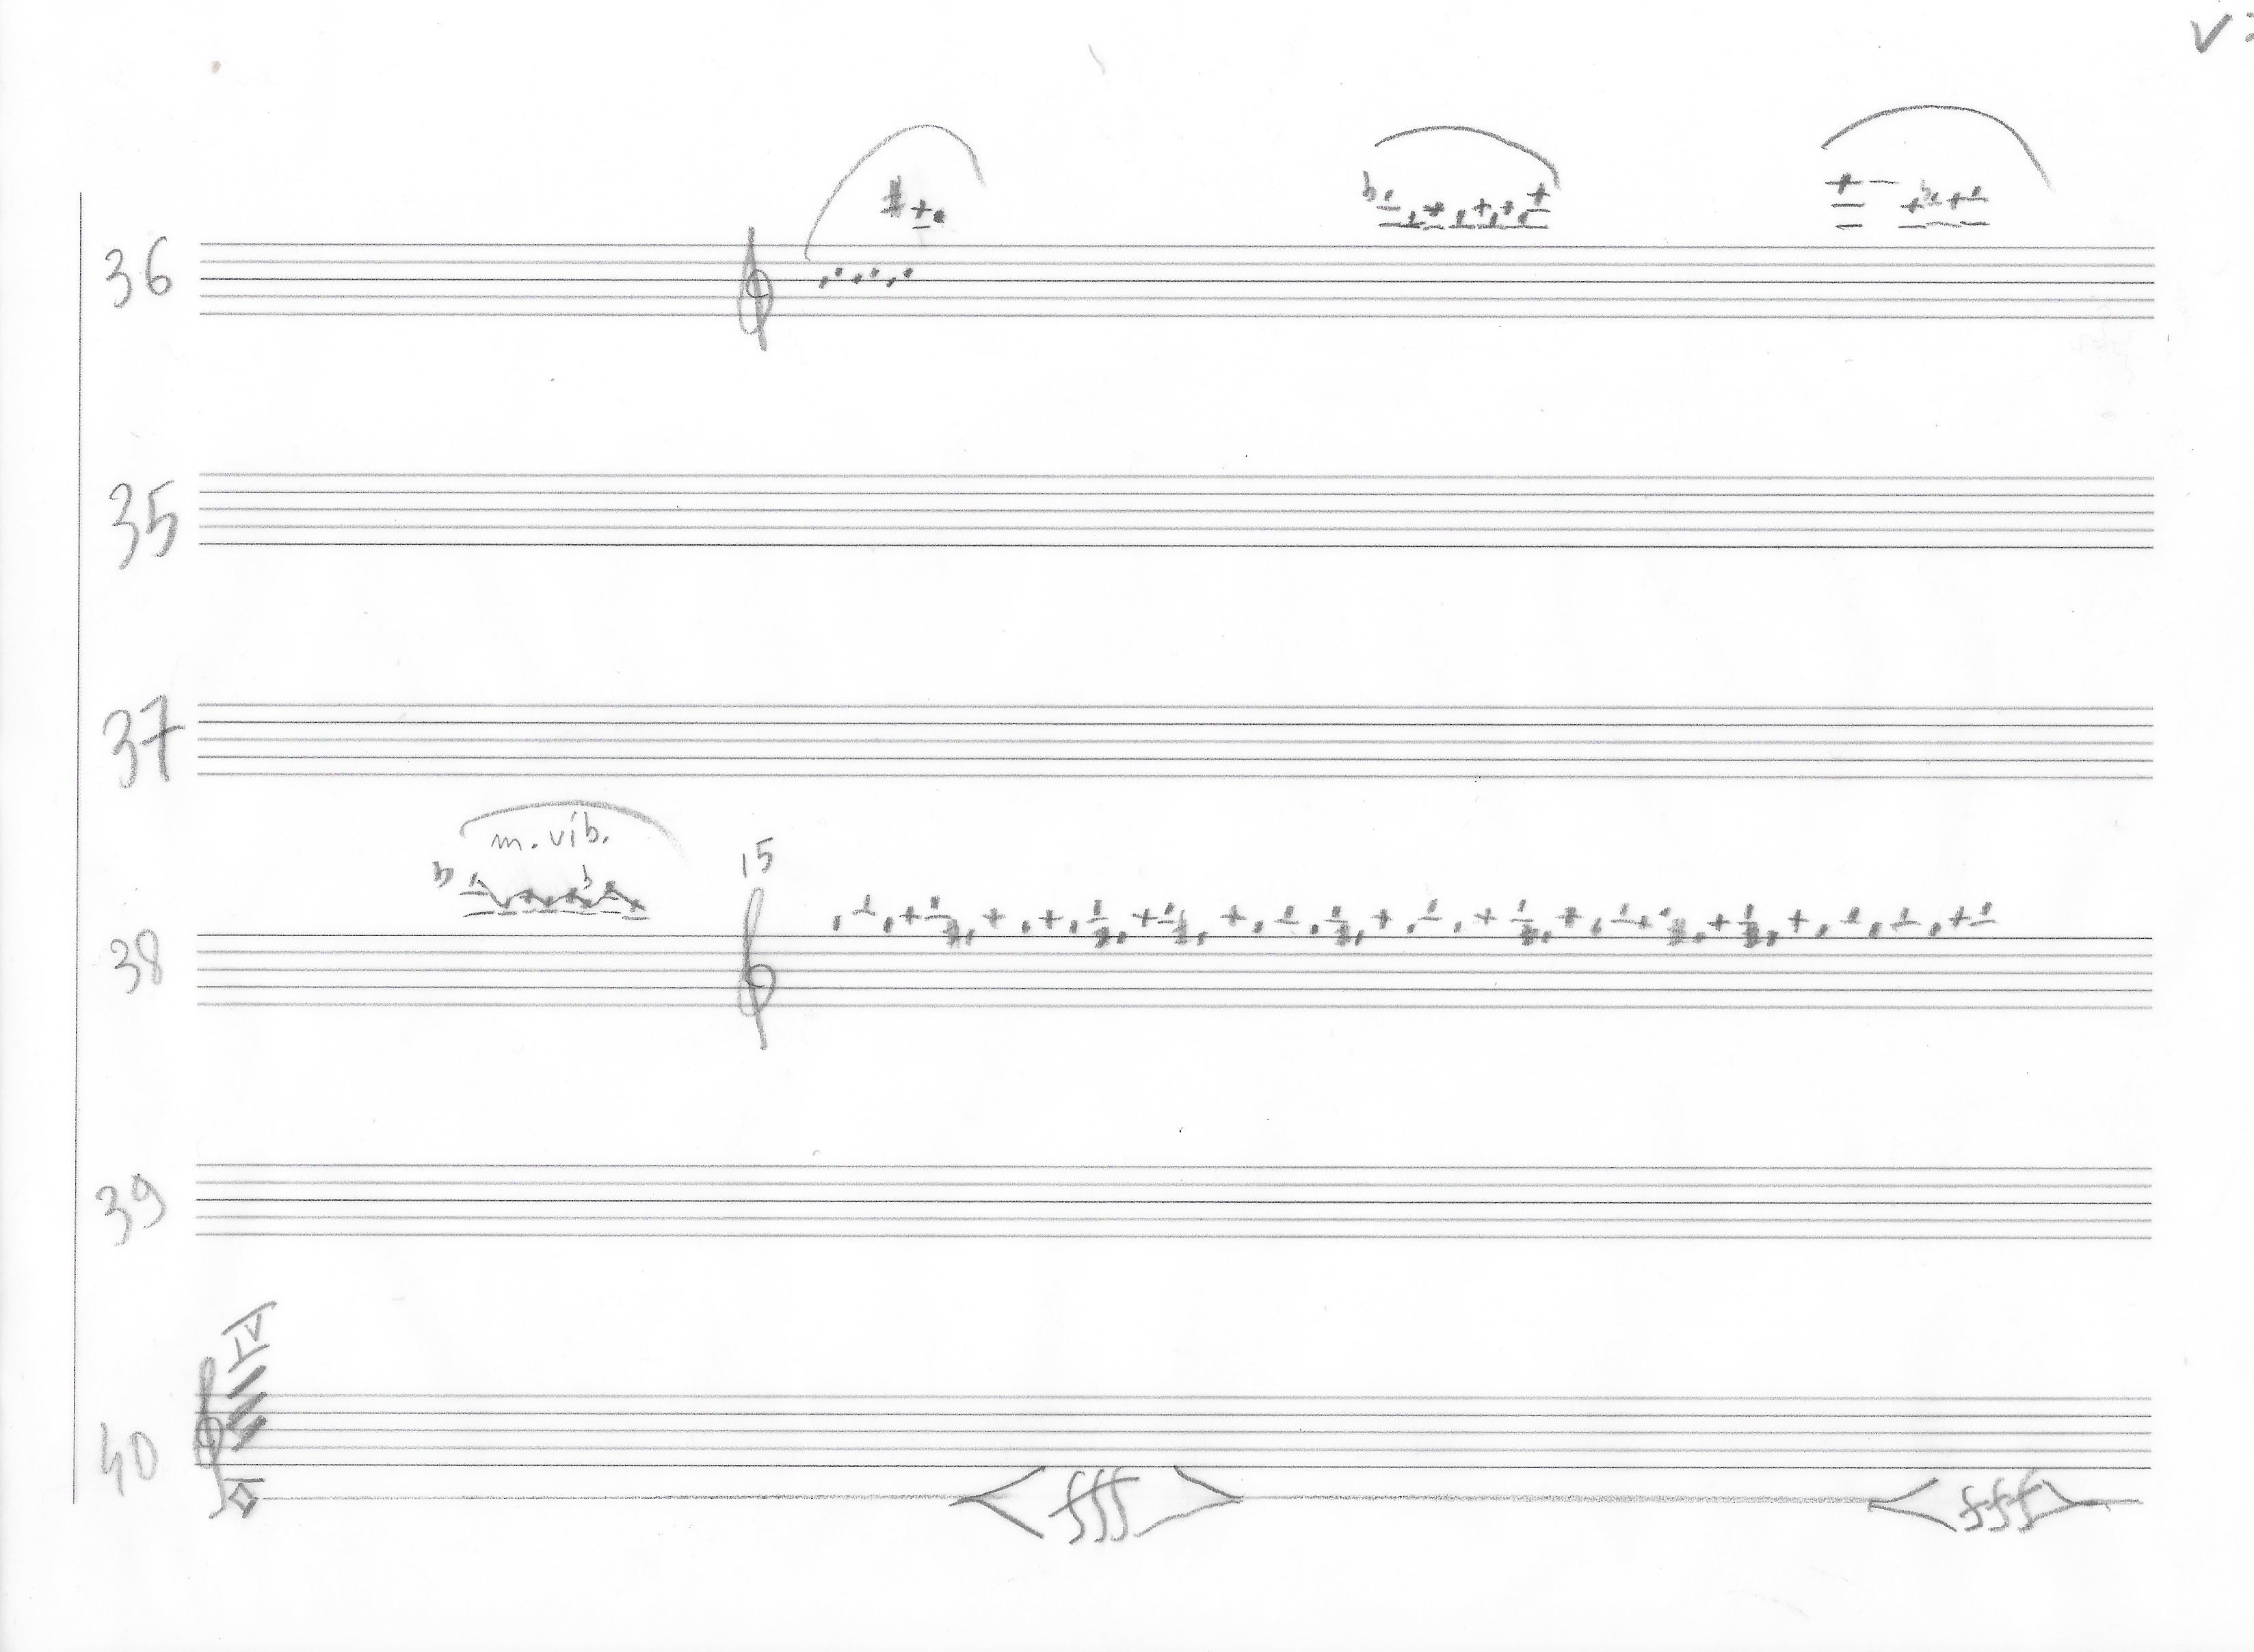 36
35
37
m. vib.
15
38
39
IV
40
fff fff